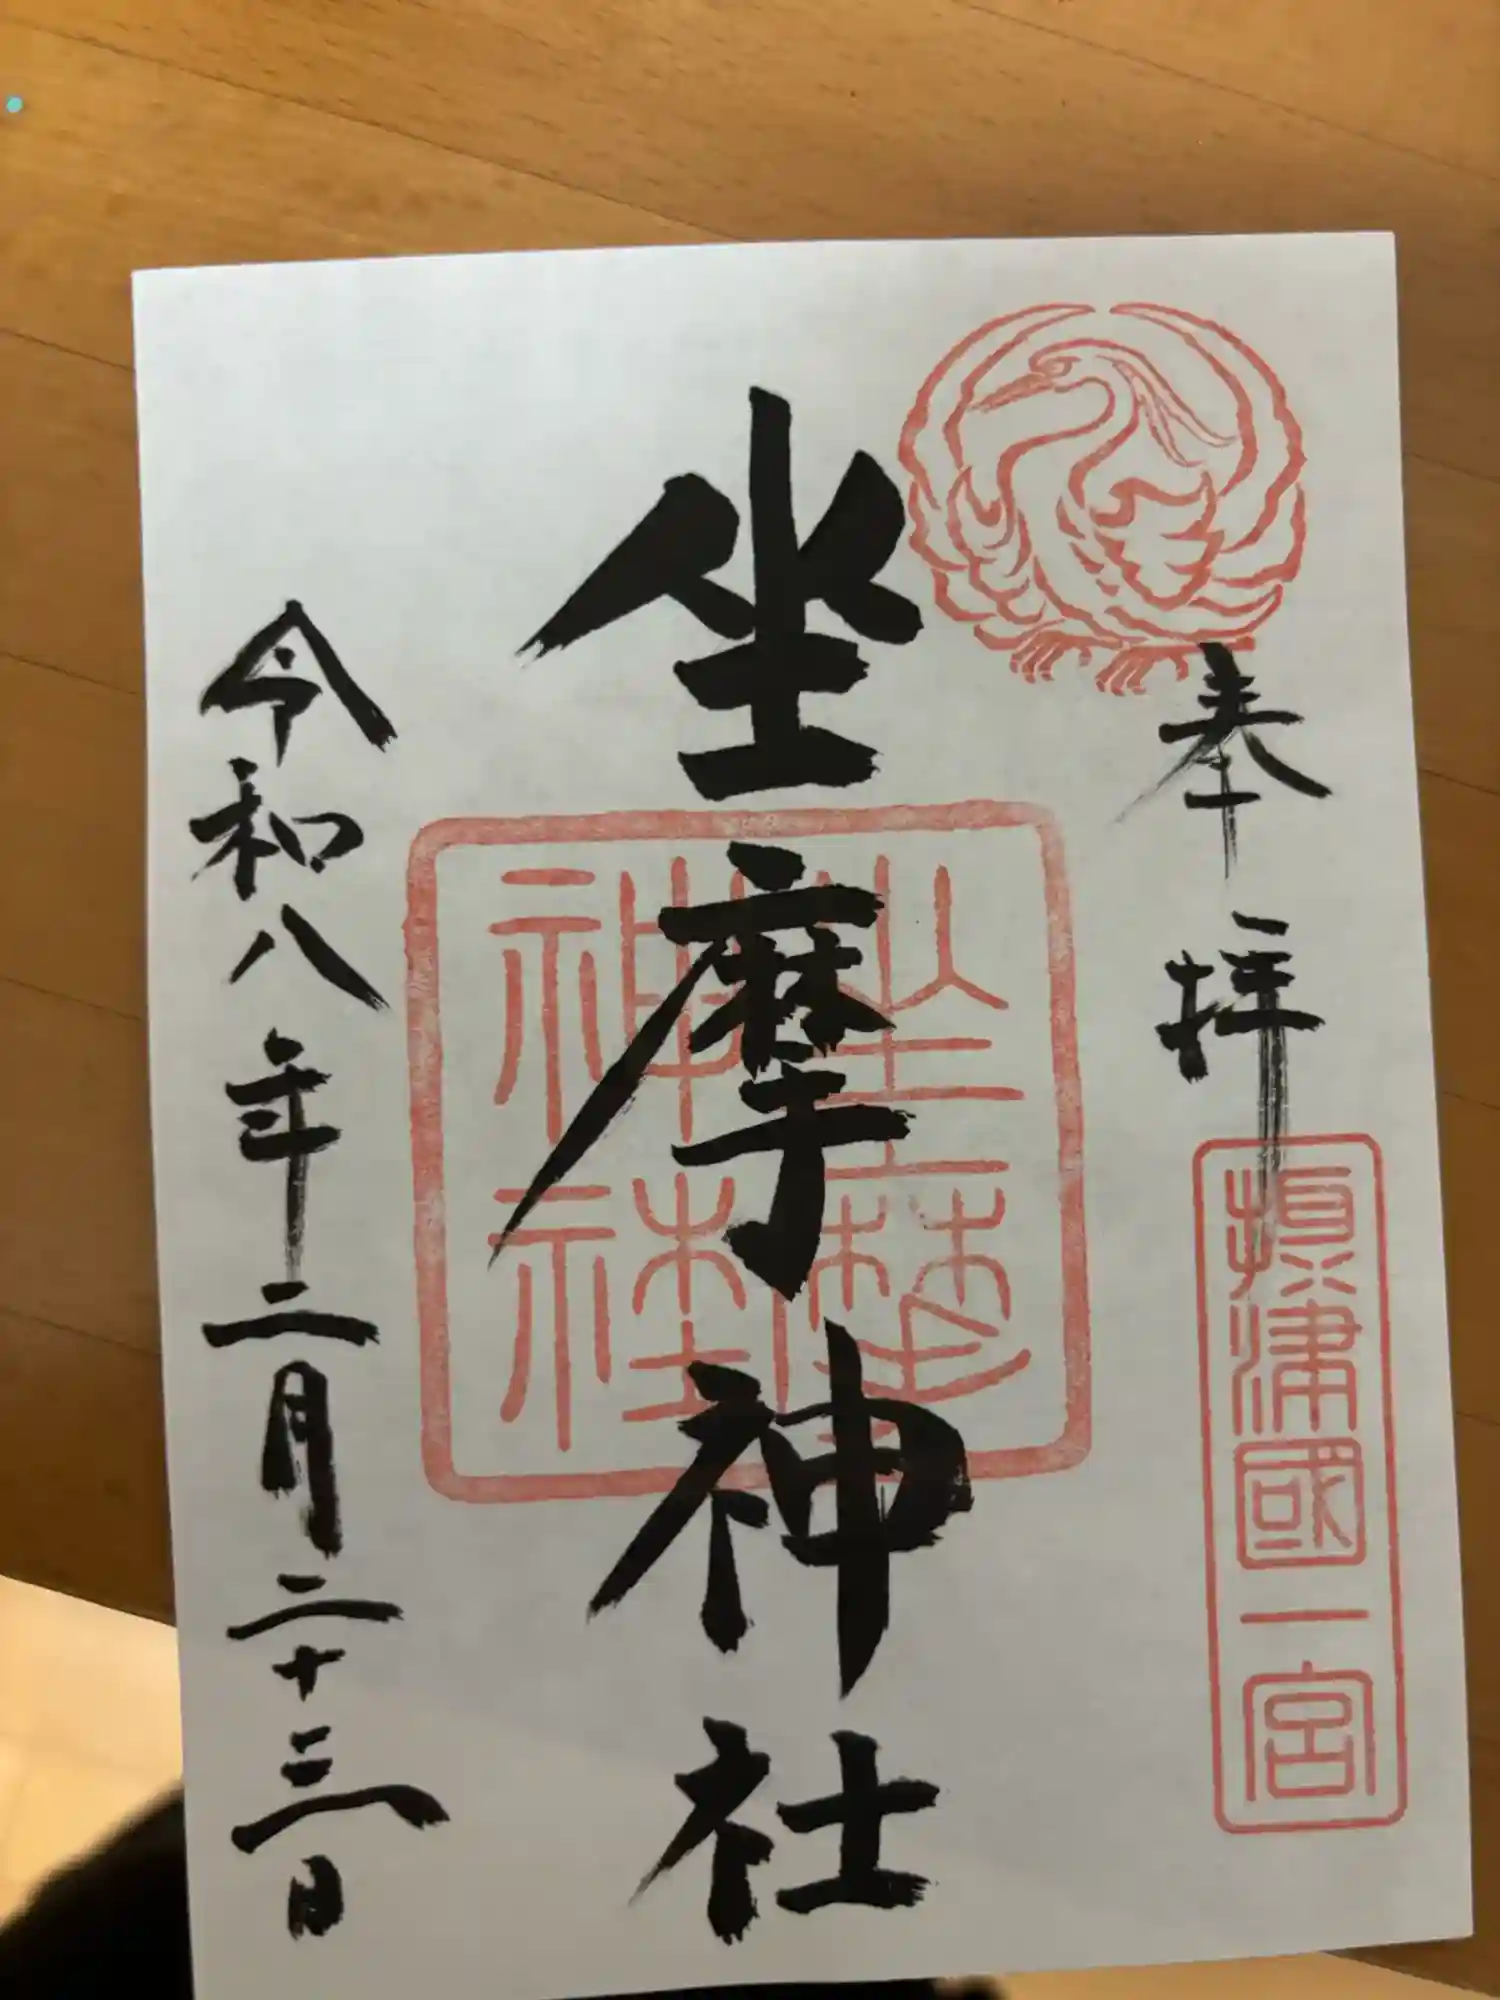 奉拝
摂津國一宮
坐摩神社
坐摩神社
令和八年二月二十三日